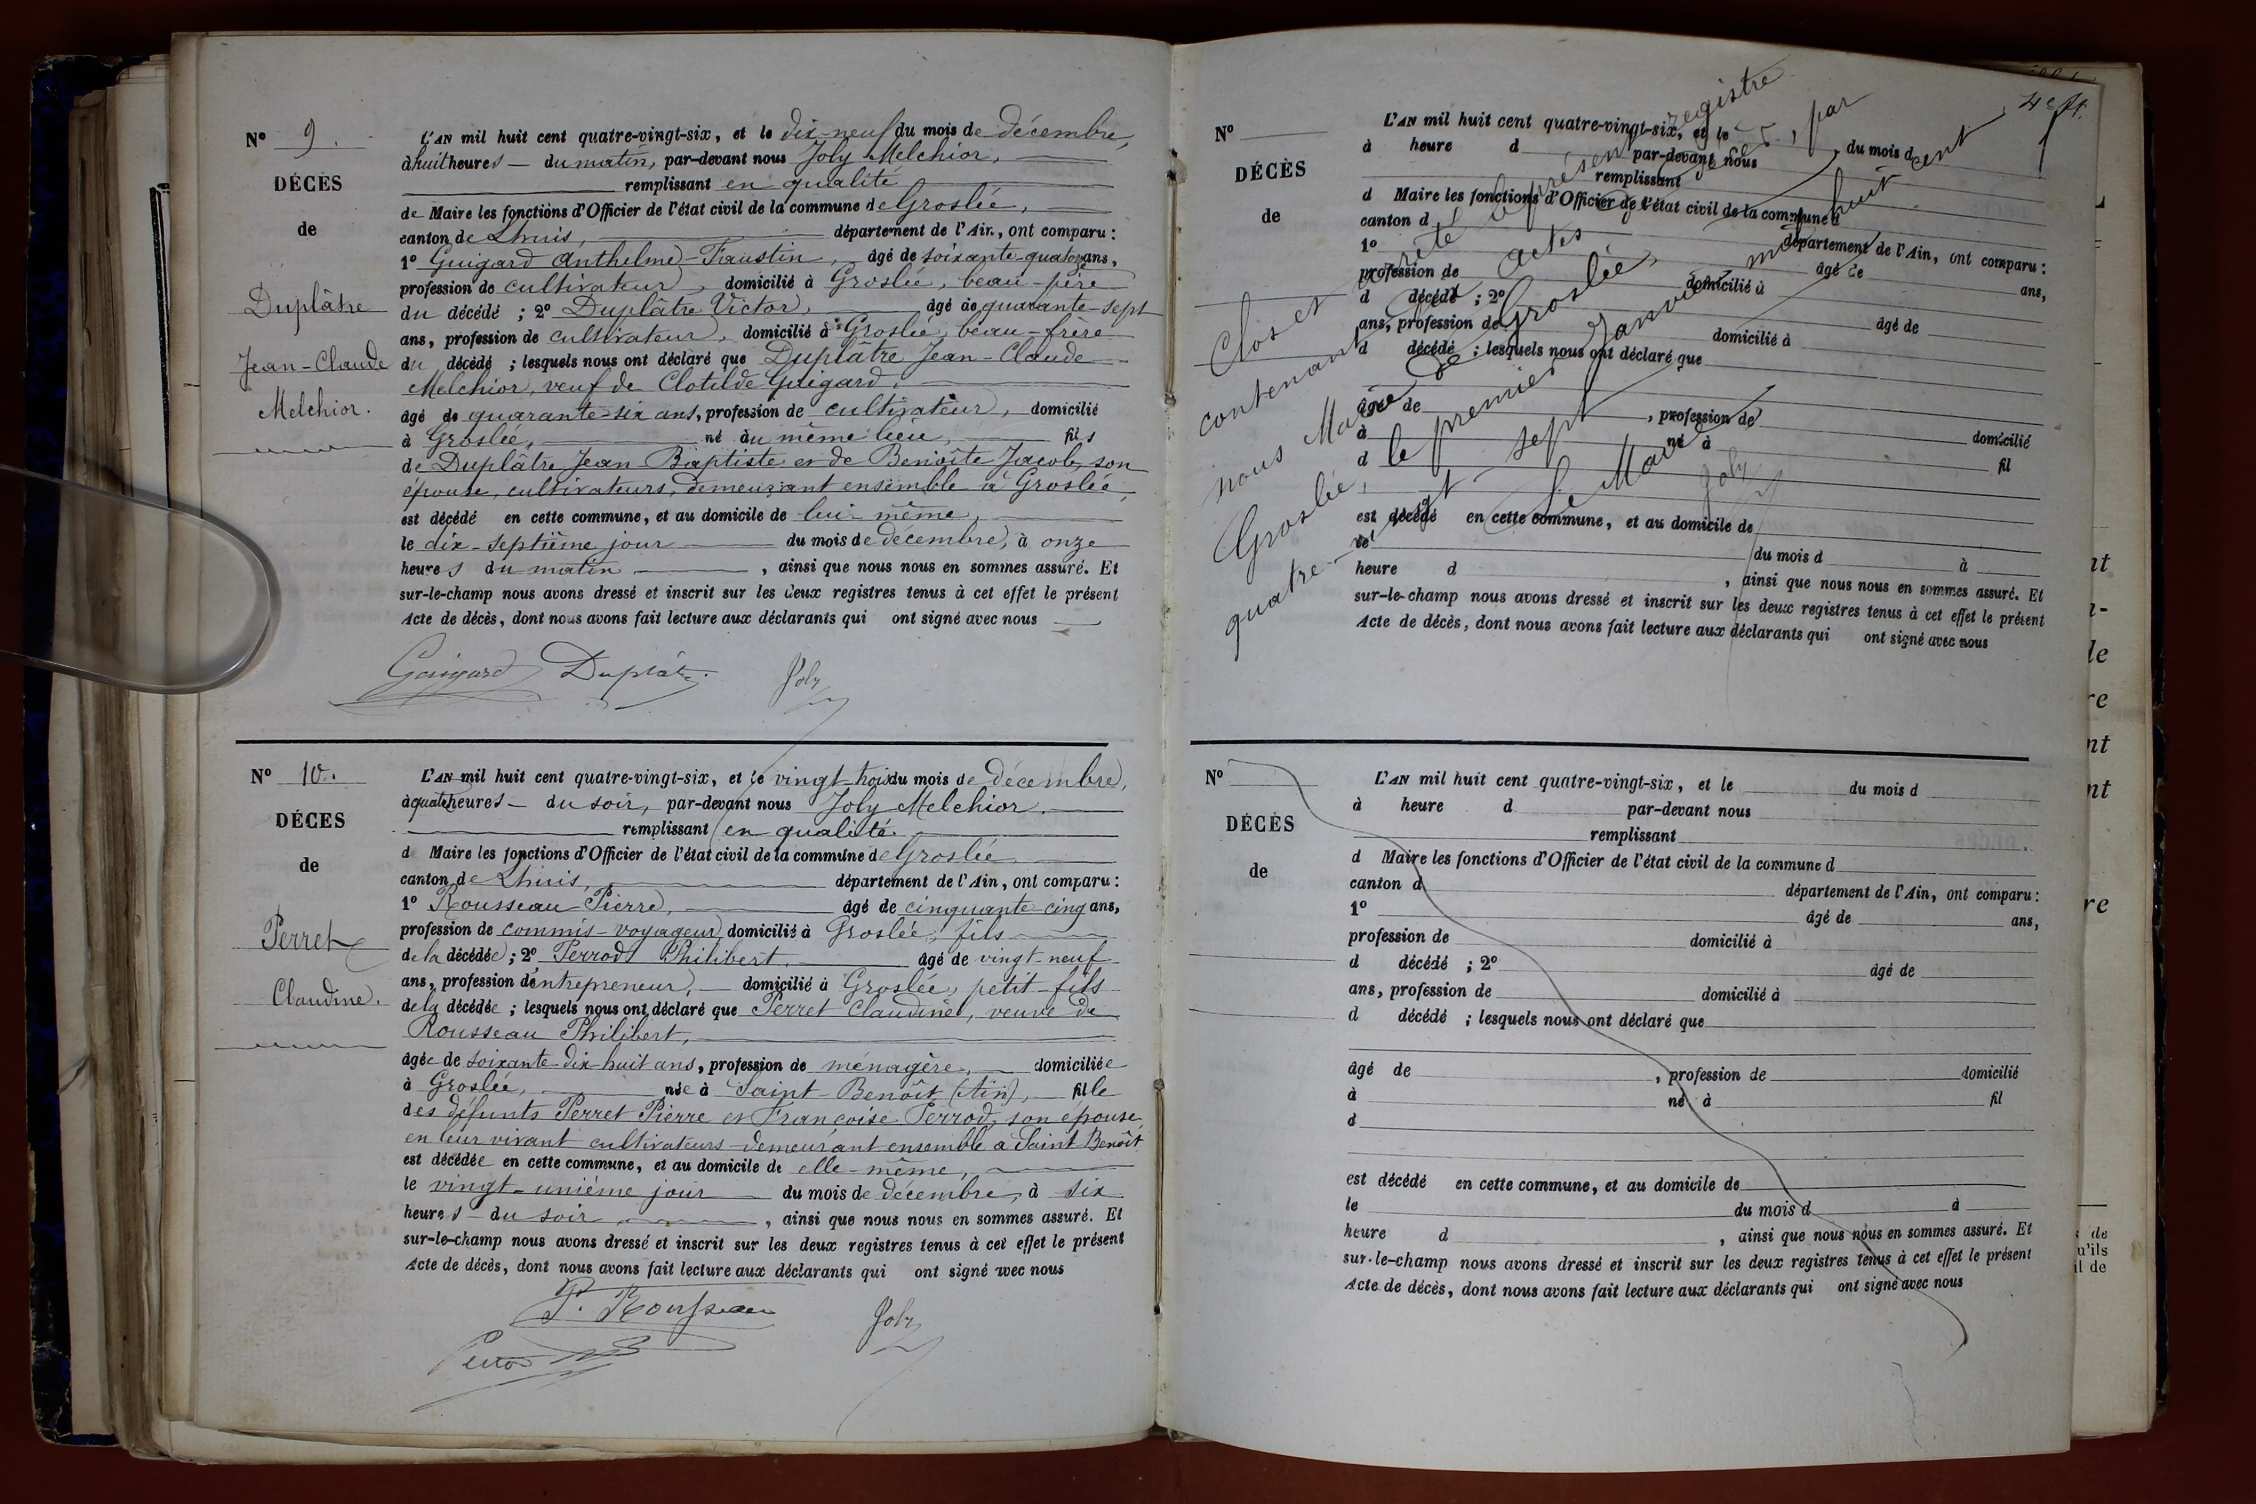 N° 9.
DÉCÈS
de
Duplâtre
Jean-Claude
Melchior.
L'AN mil huit cent quatre-vingt-six, et le dix-neuf du mois de décembre,
à huit heures du matin, par-devant nous Joly Melchior,
remplissant en qualité
de Maire les fonctions d'Officier de l'état civil de la commune de Groslée,
canton de Lhuis, département de l'Ain, ont comparu :
1° Guigard Anthelme-Faustin, âgé de soixante-quatorze ans,
profession de cultivateur, domicilié à Groslée, beau-père
du décédé ; 2° Duplâtre Victor, âgé de quarante-sept
ans, profession de cultivateur, domicilié à Groslée, beau-frère
du décédé ; lesquels nous ont déclaré que Duplâtre Jean-Claude
Melchior, veuf de Clotilde Guigard,
âgé de quarante-six ans, profession de cultivateur, domicilié
à Groslée, né au même lieu, fils
de Duplâtre Jean-Baptiste et de Benoîte Jacob, son
épouse, cultivateurs, demeurant ensemble à Groslée,
est décédé en cette commune, et au domicile de lui-même,
le dix-septième jour du mois de décembre, à onze
heures du matin, ainsi que nous nous en sommes assuré. Et
sur-le-champ nous avons dressé et inscrit sur les deux registres tenus à cet effet le présent
Acte de décès, dont nous avons fait lecture aux déclarants qui ont signé avec nous
Guigard Duplâtre Joly
N° 10.
DÉCÈS
de
Perret
Claudine.
L'AN mil huit cent quatre-vingt-six, et le vingt-trois du mois de décembre,
à quatre heures du soir, par-devant nous Joly Melchior
remplissant en qualité
d Maire les fonctions d'Officier de l'état civil de la commune de Groslée
canton de Lhuis, département de l'Ain, ont comparu :
1° Rousseau Pierre, âgé de cinquante-cinq ans,
profession de commis-voyageur, domicilié à Groslée, fils
de la décédée ; 2° Perrod Philibert, âgé de vingt-neuf
ans, profession d'entrepreneur, domicilié à Groslée, petit-fils
de la décédée ; lesquels nous ont déclaré que Perret Claudine, veuve de
Rousseau Philibert,
âgée de soixante-dix-huit ans, profession de ménagère, domiciliée
à Groslée, née à Saint-Benoît (Ain), fille
des défunts Perret Pierre et Françoise Perrod, son épouse,
en leur vivant cultivateurs demeurant ensemble à Saint Benoît
est décédée en cette commune, et au domicile de elle-même,
le vingt-unième jour du mois de décembre, à six
heures du soir, ainsi que nous nous en sommes assuré. Et
sur-le-champ nous avons dressé et inscrit sur les deux registres tenus à cet effet le présent
Acte de décès, dont nous avons fait lecture aux déclarants qui ont signé avec nous
P. Rousseau Joly
Perrod
4e ft.
N°
DÉCÈS
de
L'AN mil huit cent quatre-vingt-six, et le du mois d
à heure d par-devant nous
remplissant
d Maire les fonctions d'Officier de l'état civil de la commune d
canton d département de l'Ain, ont comparu :
1° âgé de ans,
profession de domicilié à
d décédé ; 2° âgé de
ans, profession de domicilié à
d décédé ; lesquels nous ont déclaré que
âgé de , profession de domicilié
à né à fil
d
est décédé en cette commune, et au domicile de
le du mois d à
heure d , ainsi que nous nous en sommes assuré. Et
sur-le-champ nous avons dressé et inscrit sur les deux registres tenus à cet effet le présent
Acte de décès, dont nous avons fait lecture aux déclarants qui ont signé avec nous
Clos et arrêté le présent registre
contenant actes de décès, par
nous Maire de Groslée,
Groslée, le premier Janvier mil huit cent
quatre-vingt sept
Le Maire
Joly
N°
DÉCÈS
de
L'AN mil huit cent quatre-vingt-six, et le du mois d
à heure d par-devant nous
remplissant
d Maire les fonctions d'Officier de l'état civil de la commune d
canton d département de l'Ain, ont comparu :
1° âgé de ans,
profession de domicilié à
d décédé ; 2° âgé de
ans, profession de domicilié à
d décédé ; lesquels nous ont déclaré que
âgé de , profession de domicilié
à né à fil
d
est décédé en cette commune, et au domicile de
le du mois d à
heure d , ainsi que nous nous en sommes assuré. Et
sur-le-champ nous avons dressé et inscrit sur les deux registres tenus à cet effet le présent
Acte de décès, dont nous avons fait lecture aux déclarants qui ont signé avec nous